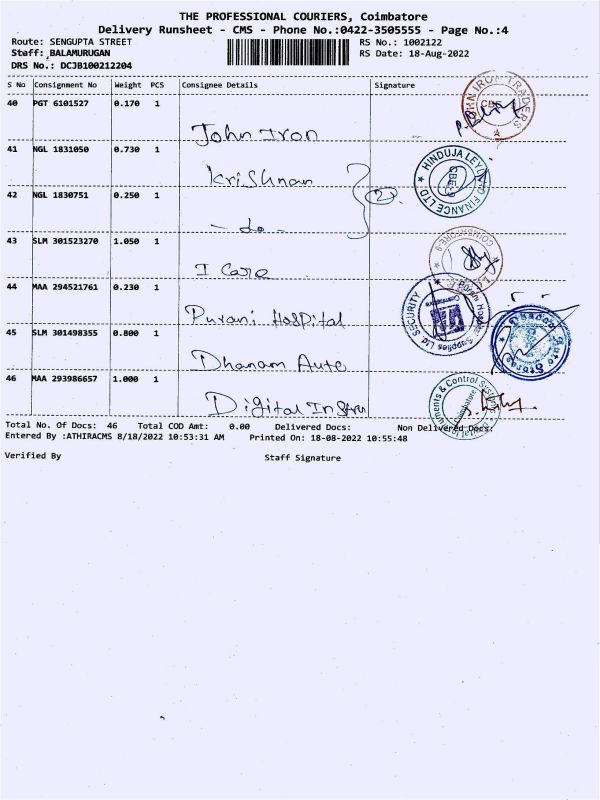 THE PROFESSIONAL COURIERS, Coimbatore
Delivery Runsheet - CMS - Phone No.:0422-3505555 - Page No.:4
Route: SENGUPTA STREET
RS No.: 1002122
Staff: BALAMURUGAN
RS Date: 18-Aug-2022
DRS No.: DCJB100212204
S No Consignment No Weight PCS Consignee Details Signature
40 PGT 6101527 0.170 1
John Iron
JOHN IRON TRADERS
CBE
41 NGL 1831050 0.730 1
Krishnan
HINDUJA LEYLAND FINANCE LTD
CBE-9
42 NGL 1830751 0.250 1
- do -
2
43 SLM 301523270 1.050 1
I Care
COIMBATORE-9
44 MAA 294521761 0.230 1
Purani Hospital
Purani Hospital Supplies Ltd SECURITY
Coimbatore
45 SLM 301498355 0.800 1
Dhanam Auto
Dhanam Auto Stores
46 MAA 293986657 1.000 1
Digital Instru
Digital Instruments & Control Systems
Coimbatore
Total No. Of Docs: 46 Total COD Amt: 0.00 Delivered Docs: Non Delivered Docs:
Entered By :ATHIRACMS 8/18/2022 10:53:31 AM Printed On: 18-08-2022 10:55:48
Verified By Staff Signature